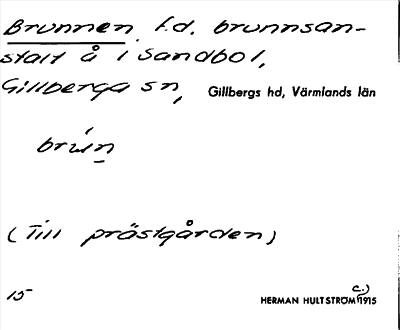 Brunnen f.d. brunnsan-
stalt å i Sandbol,
Gillberga sn, Gillbergs hd, Värmlands län
brún
(Till prästgården)
15 HERMAN HULTSTRÖM c.) 1915